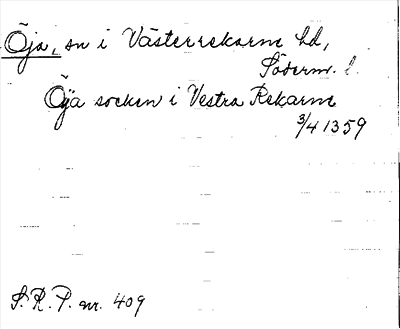 Öja, sn i Västerrekarne hd,
Söderm. l.
Öya socken i Vestra Rekarne
3/4 1359
S. R. P. nr. 409